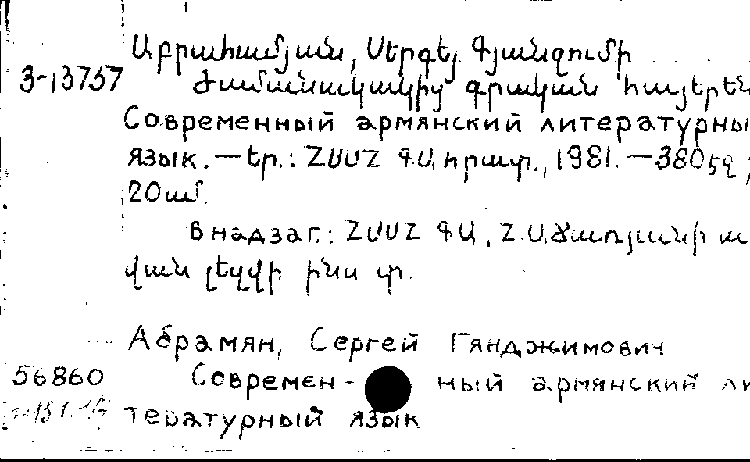 Աբրահամյան, Սերգեյ Գյանջումի
3-13757 Ժամանակակից գրական հայերեն
Современный армянский литературны
язык. — Եր.: ՀՍՍՀ ԳԱ հրատ., 1981. — 380 էջ;
20 սմ.
В надзаг.: ՀՍՍՀ ԳԱ, Հ. Աճառյանի ա
վան լեզվի ինստ.
Абрамян, Сергей Гянджимович
56860 Современ- ный армянский ли
тературный язык